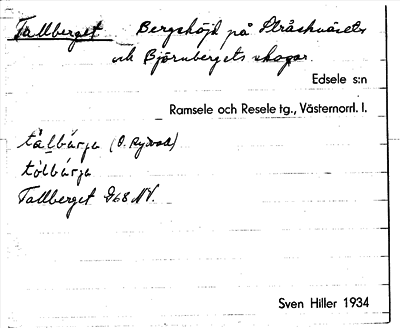 Tallberget Bergshöjd på Stråskväsets
och Björnbergets skogar.
Edsele s:n
Ramsele och Resele tg., Västernorrl. l.
tålbárjə (O. Rydvall)
tòlbárjə
Tallberget 968 NV.
Sven Hiller 1934